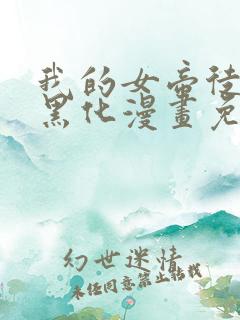 我的女帝徒
黑化漫畫免
幻世迷情
未经同意禁止转载